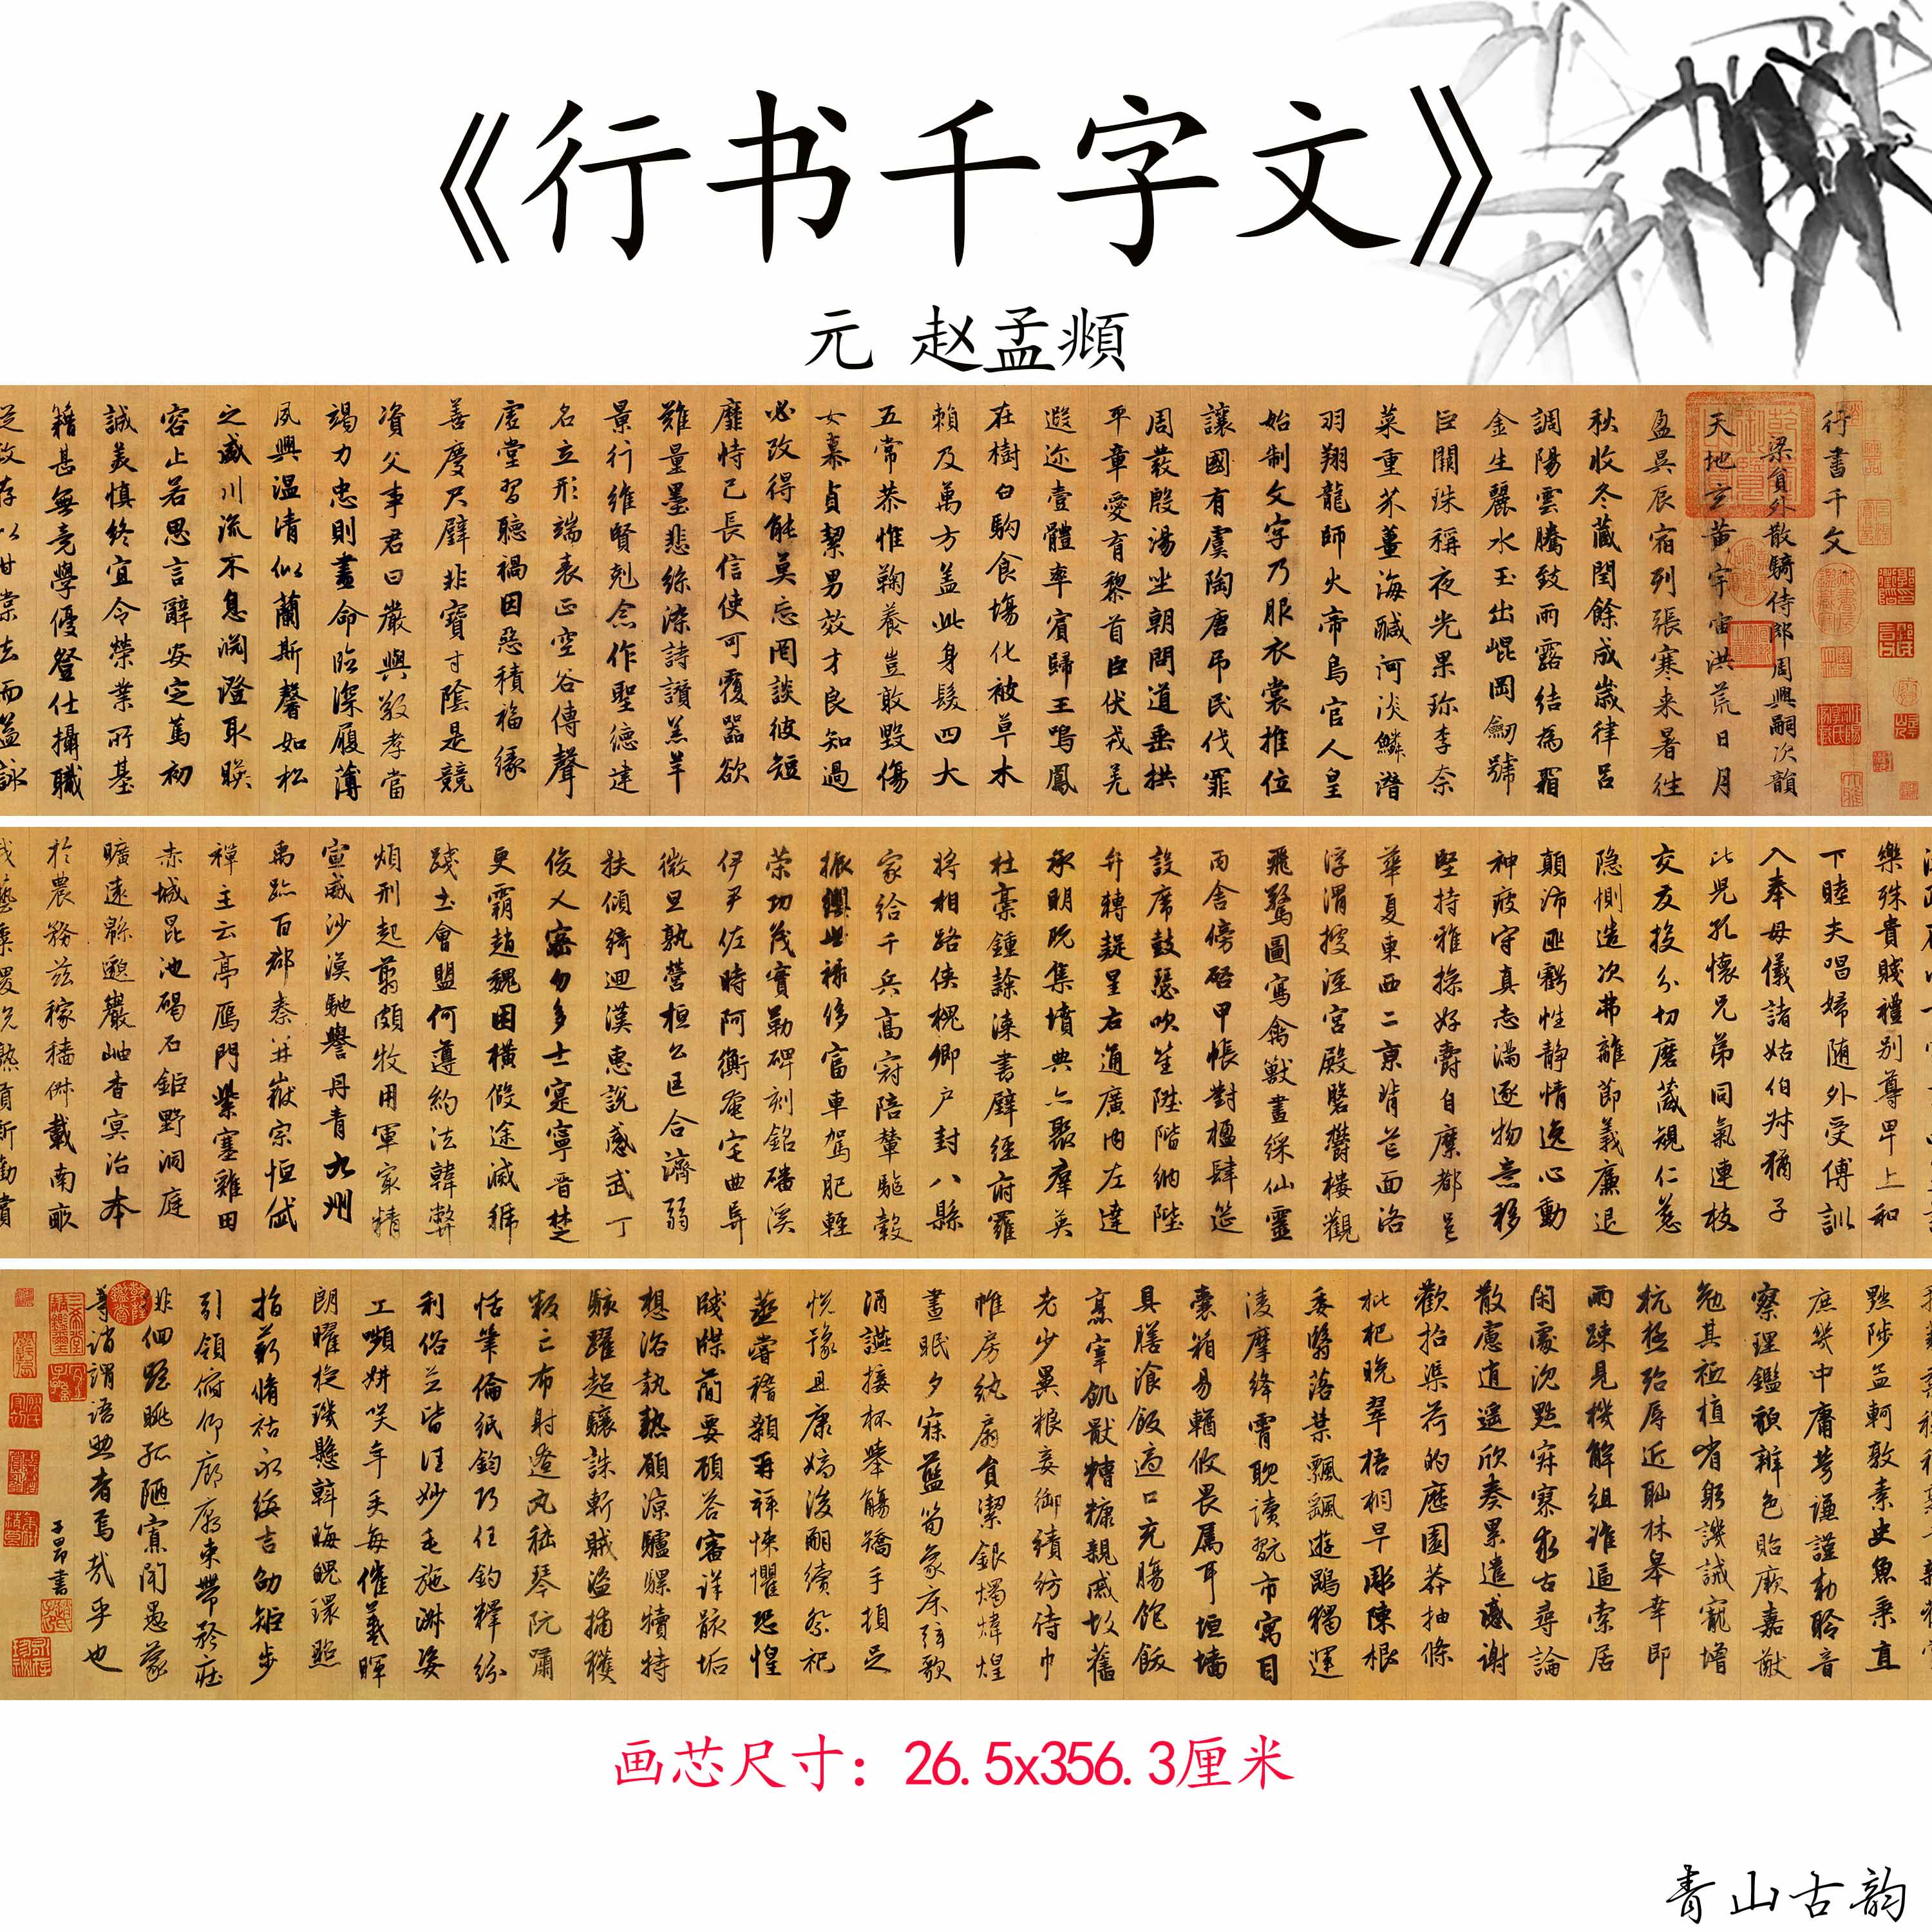 《行书千字文》
元 赵孟頫
行書千文
梁員外散騎侍郎周興嗣次韻
天地玄黃宇宙洪荒日月
盈昃辰宿列張寒来暑往
秋收冬藏閏餘成歲律呂
調陽雲騰致雨露結為霜
金生麗水玉出崐岡劒號
巨闕珠稱夜光果珎李柰
菜重芥薑海醎河淡鱗潛
羽翔龍師火帝鳥官人皇
始制文字乃服衣裳推位
讓國有虞陶唐吊民伐罪
周發殷湯坐朝問道垂拱
平章愛育黎首臣伏戎羌
遐迩壹體率賓歸王鳴鳳
在樹白駒食場化被草木
賴及萬方盖此身髮四大
五常恭惟鞠養豈敢毀傷
女慕貞絜男效才良知過
必改得能莫忘罔談彼短
靡恃己長信使可覆器欲
難量墨悲絲染詩讚羔羊
景行維賢剋念作聖德建
名立形端表正空谷傳聲
虛堂習聽禍因惡積福緣
善慶尺璧非寶寸陰是競
資父事君曰嚴與敬孝當
竭力忠則盡命臨深履薄
夙興温清似蘭斯馨如松
之盛川流不息淵澄取暎
容止若思言辭安定篤初
誠美慎終宜令榮業所基
籍甚無竟學優登仕攝職
從政存以甘棠去而益詠
樂殊貴賤禮別尊卑上和
下睦夫唱婦随外受傅訓
入奉母儀諸姑伯叔猶子
比兒孔懷兄弟同氣連枝
交友投分切磨箴規仁慈
隐惻造次弗離節義廉退
顛沛匪虧性静情逸心動
神疲守真志滿逐物意移
堅持雅操好爵自縻都邑
華夏東西二京背芒面洛
浮渭據涇宮殿磐鬱樓觀
飛驚圖寫禽獸畫綵仙靈
丙舍傍啓甲帳對楹肆筵
設席鼓瑟吹笙陞階納陛
弁轉疑星右通廣內左達
承明既集墳典亦聚羣英
杜稾鍾隸漆書壁經府羅
將相路俠槐卿户封八縣
家給千兵高冠陪輦驅轂
振纓世禄侈富車駕肥輕
策功茂實勒碑刻銘磻溪
伊尹佐時阿衡奄宅曲阜
微旦孰營桓公匡合濟弱
扶傾綺迴漢惠說感武丁
俊乂密勿多士寔寧晉楚
更霸趙魏困橫假途滅虢
踐土會盟何遵約法韓弊
煩刑起翦頗牧用軍最精
宣威沙漠馳譽丹青九州
禹跡百郡秦并嶽宗恒岱
禪主云亭鴈門紫塞雞田
赤城昆池碣石鉅野洞庭
曠遠緜邈巖岫杳冥治本
於農務兹稼穡俶載南畝
黜陟孟軻敦素史魚秉直
庶幾中庸勞謙謹勑聆音
察理鑑貌辨色貽厥嘉猷
勉其祗植省躬譏誡寵增
抗極殆辱近恥林皋幸即
兩疏見機解組誰逼索居
閑處沉默寂寥求古尋論
散慮逍遥欣奏累遣慼謝
歡招渠荷的歷園莽抽條
枇杷晚翠梧桐早彫陳根
委翳落葉飄颻遊鵾獨運
凌摩絳霄耽讀翫市寓目
囊箱易輶攸畏屬耳垣墻
具膳飡飯適口充腸飽飫
烹宰飢猒糟糠親戚故舊
老少異粮妾御績紡侍巾
帷房紈扇負潔銀燭煒煌
晝眠夕寐藍笋象床弦歌
酒讌接杯舉觴矯手頓足
悅豫且康嫡後嗣續祭祀
蒸嘗稽顙再拜悚懼恐惶
牋牒簡要顧答審詳骸垢
想浴執熱願涼驢騾犢特
駭躍超驤誅斬賊盜捕獲
叛亡布射遼丸嵇琴阮嘯
恬筆倫紙鈞巧任釣釋紛
利俗並皆佳妙毛施淑姿
工嚬妍笑年矢每催羲暉
朗曜旋璣懸斡晦魄環照
指薪脩祜永綏吉劭矩步
引領俯仰廊廟束帶矜莊
徘徊瞻眺孤陋寡聞愚蒙
等誚謂語助者焉哉乎也
子昂書
画芯尺寸：26.5x356.3厘米
青山古韵